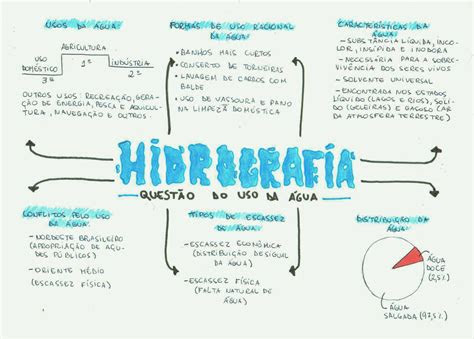 USOS DA ÁGUA
AGRICULTURA
USO
DOMÉSTICO
1º
INDÚSTRIA
3º
2º
OUTROS USOS: RECREAÇÃO, GERA-
ÇÃO DE ENERGIA, PESCA E AQUICUL-
TURA, NAVEGAÇÃO E OUTROS.
FORMAS DE USO RACIONAL
DA ÁGUA
• BANHOS MAIS CURTOS
• CONSERTO DE TORNEIRAS
• LAVAGEM DE CARROS COM
BALDE
• USO DE VASSOURA E PANO
NA LIMPEZA DOMÉSTICA
CARACTERÍSTICAS DA
ÁGUA
- SUBSTÂNCIA LÍQUIDA, INCO-
LOR, INSÍPIDA E INODORA
- NECESSÁRIA PARA A SOBRE-
VIVÊNCIA DOS SERES VIVOS
- SOLVENTE UNIVERSAL
- ENCONTRADA NOS ESTADOS
LÍQUIDO (LAGOS E RIOS), SÓLI-
DO (GELEIRAS) E GASOSO (VAPOR
DA ATMOSFERA TERRESTRE)
HIDROGRAFIA
QUESTÃO DO USO DA ÁGUA
CONFLITOS PELO USO
DA ÁGUA
- NORDESTE BRASILEIRO
(APROPRIAÇÃO DE AÇU-
DES PÚBLICOS)
- ORIENTE MÉDIO
(ESCASSEZ FÍSICA)
TIPOS DE ESCASSEZ
DE ÁGUA
- ESCASSEZ ECONÔMICA
(DISTRIBUIÇÃO DESIGUAL
DA ÁGUA)
- ESCASSEZ FÍSICA
(FALTA NATURAL DE
ÁGUA)
DISTRIBUIÇÃO DA
ÁGUA
ÁGUA
DOCE
(2,5%)
ÁGUA
SALGADA (97,5%)